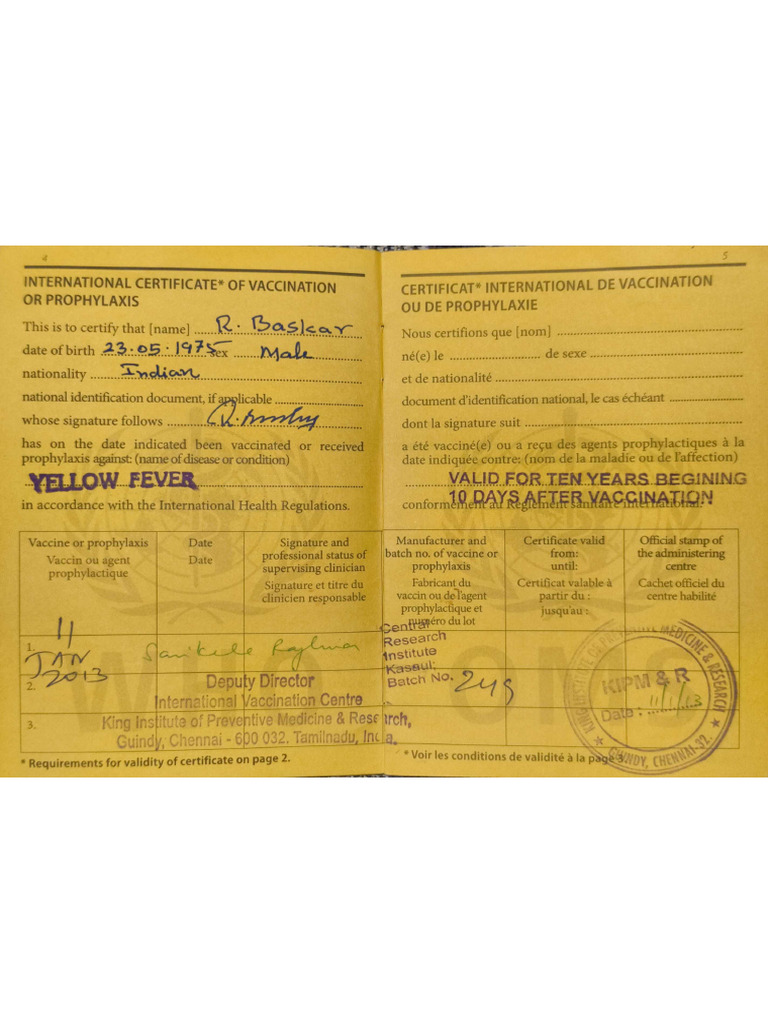 4
INTERNATIONAL CERTIFICATE* OF VACCINATION
OR PROPHYLAXIS
This is to certify that [name] R. Baskar
date of birth 23.05.1975 sex Male
nationality Indian
national identification document, if applicable
whose signature follows
has on the date indicated been vaccinated or received
prophylaxis against: (name of disease or condition)
YELLOW FEVER
in accordance with the International Health Regulations.
Vaccine or prophylaxis
Vaccin ou agent
prophylactique
Date
Date
Signature and
professional status of
supervising clinician
Signature et titre du
clinicien responsable
1.
11
JAN
2013
2.
Deputy Director
International Vaccination Centre
3.
King Institute of Preventive Medicine & Research,
Guindy, Chennai - 600 032. Tamilnadu, India.
* Requirements for validity of certificate on page 2.
5
CERTIFICAT* INTERNATIONAL DE VACCINATION
OU DE PROPHYLAXIE
Nous certifions que [nom]
né(e) le de sexe
et de nationalité
document d'identification national, le cas échéant
dont la signature suit
a été vacciné(e) ou a reçu des agents prophylactiques à la
date indiquée contre: (nom de la maladie ou de l'affection)
VALID FOR TEN YEARS BEGINING
10 DAYS AFTER VACCINATION
conformément au Règlement sanitaire international.
Manufacturer and
batch no. of vaccine or
prophylaxis
Fabricant du
vaccin ou de l'agent
prophylactique et
numéro du lot
Certificate valid
from:
until:
Certificat valable à
partir du :
jusqu'au :
Official stamp of
the administering
centre
Cachet officiel du
centre habilité
Central
Research
Institute
Kasauli
Batch No. 249
KING INSTITUTE OF PREVENTIVE MEDICINE & RESEARCH
KIPM & R
Date : 11/1/13
GUINDY, CHENNAI-32.
* Voir les conditions de validité à la page 3.